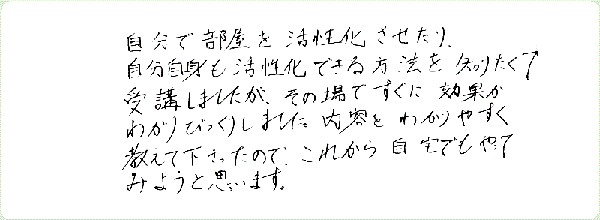 自分で部屋を活性化させたり、
自分自身も活性化できる方法を知りたくて
受講しましたが、その場ですぐに効果が
わかりびっくりしました。内容をわかりやすく
教えて下さったので、これから自宅でもやって
みようと思います。